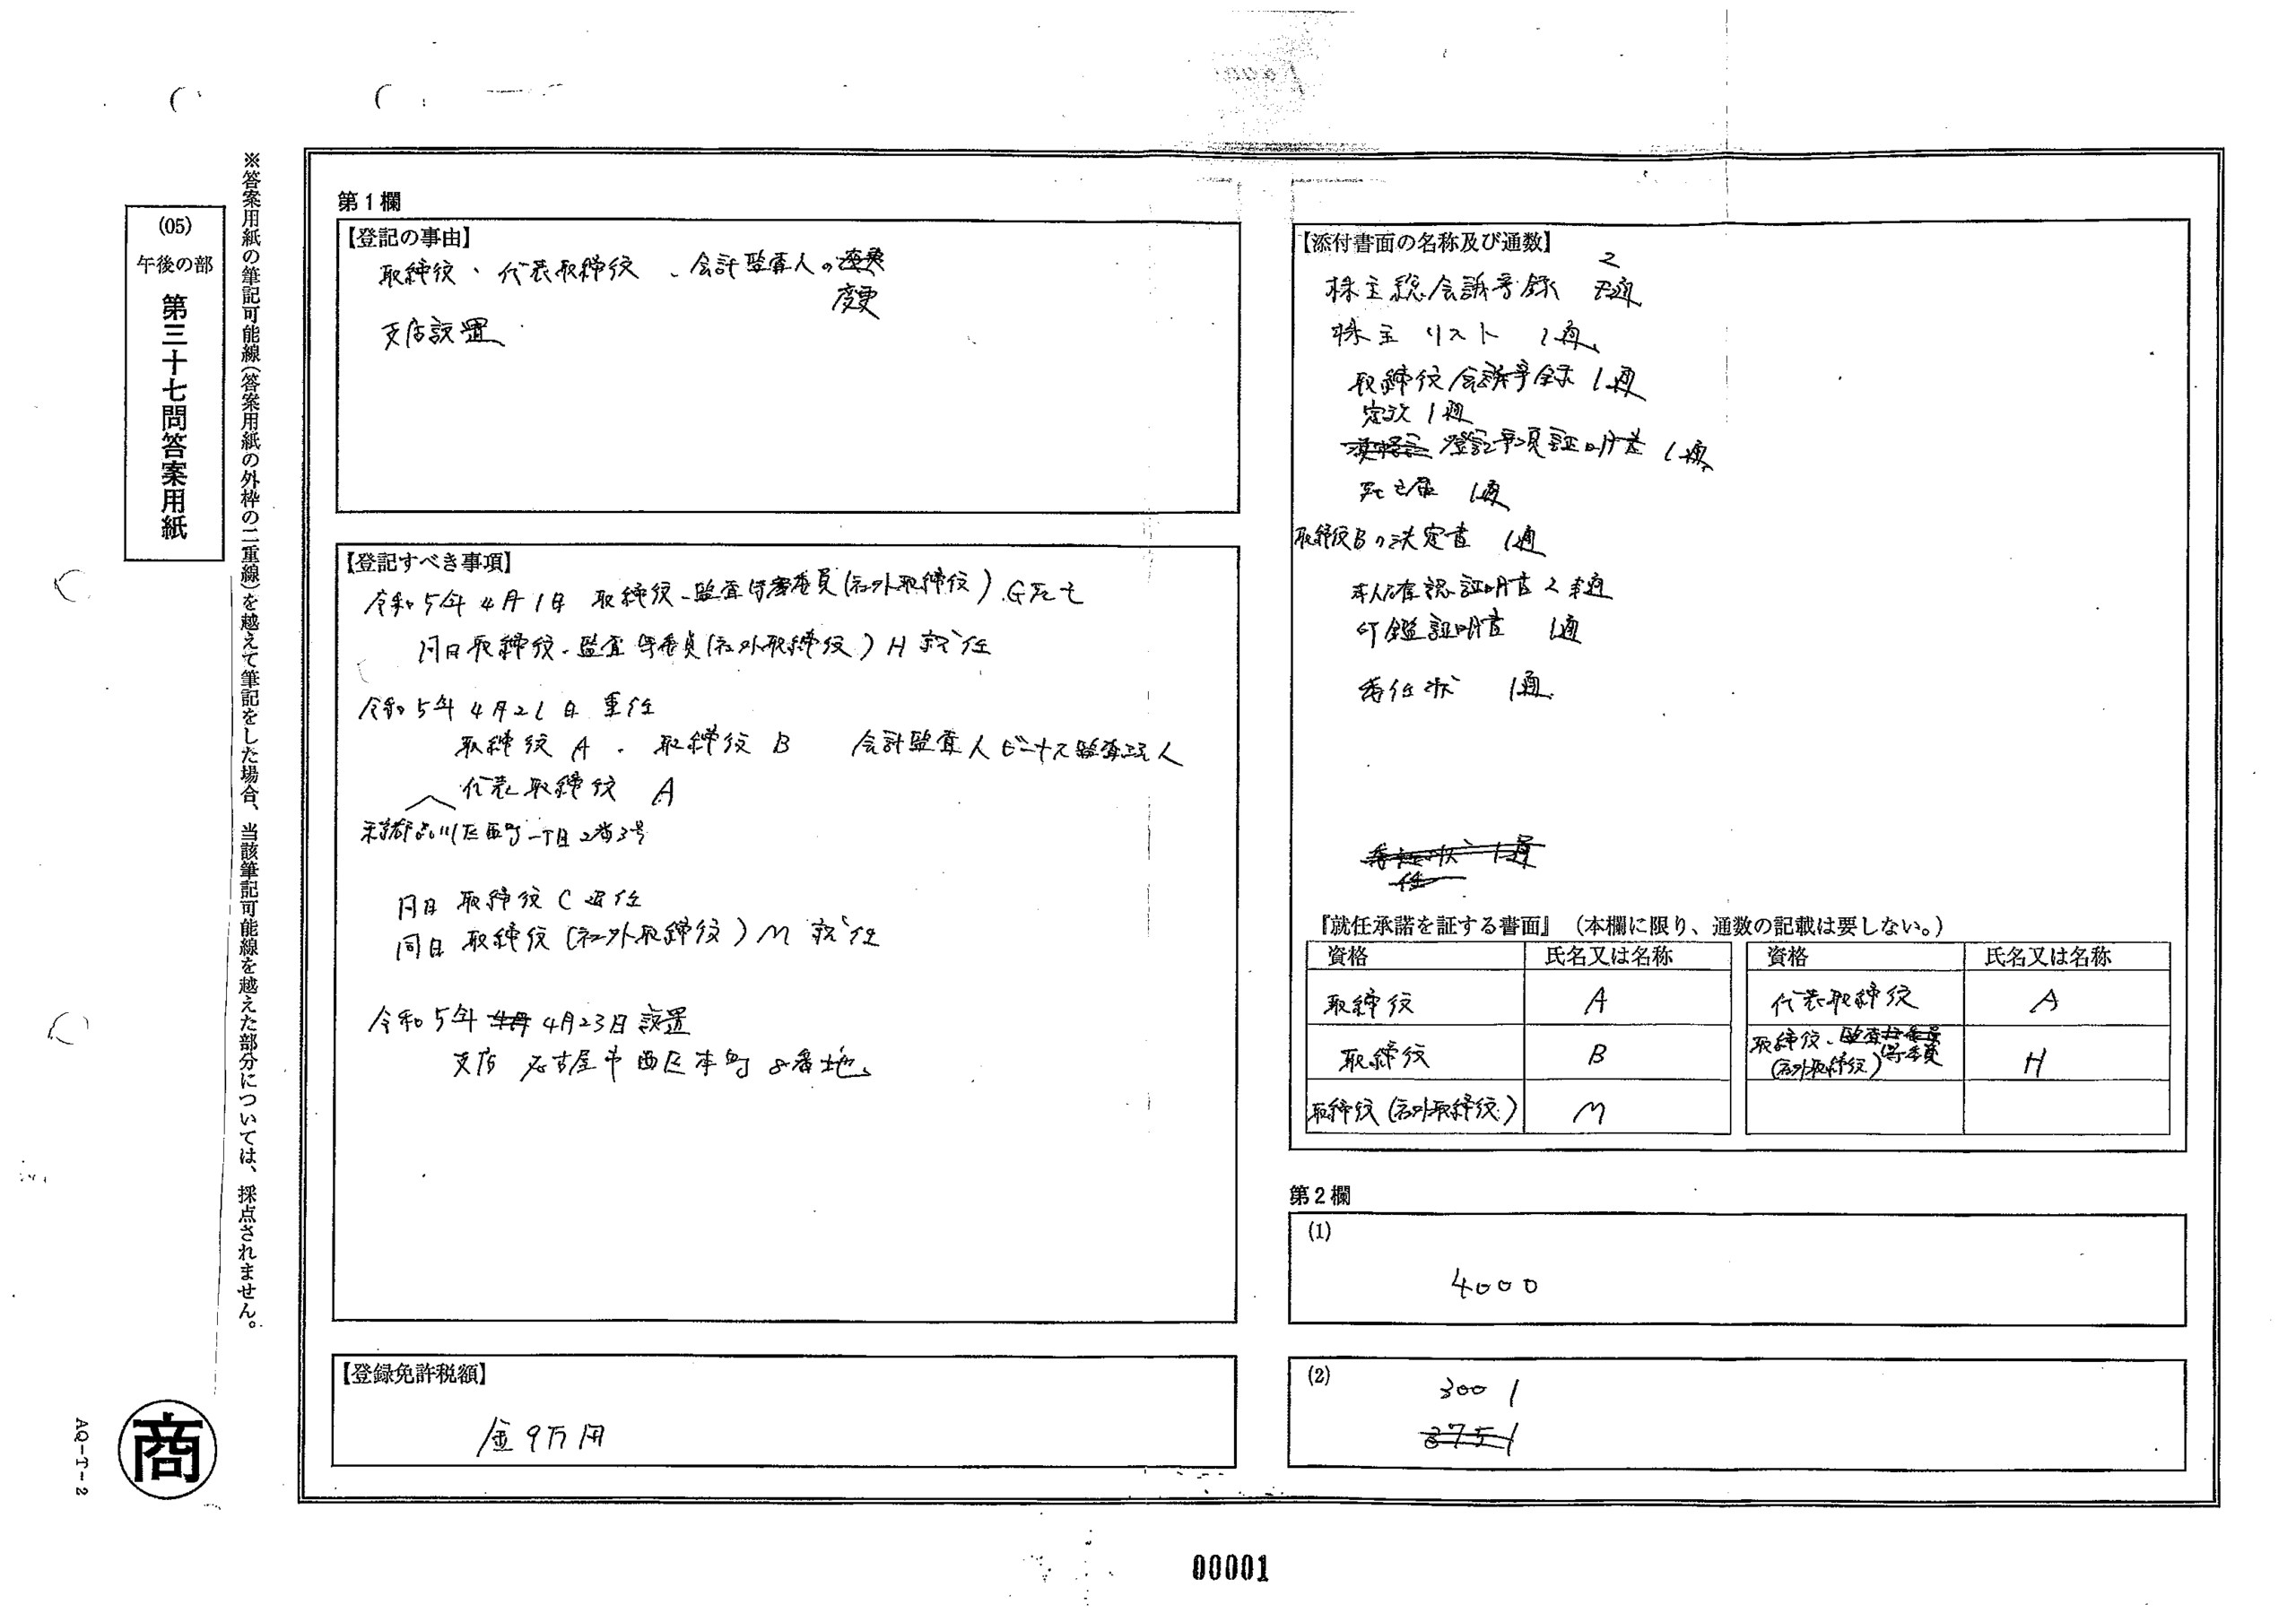 (05)
午後の部
第三十七問答案用紙
※答案用紙の筆記可能線(答案用紙の外枠の二重線)を越えて筆記をした場合、当該筆記可能線を越えた部分については、採点されません。
第1欄
【登記の事由】
取締役、代表取締役、会計監査人の
変更
支店設置
【登記すべき事項】
令和5年4月1日 取締役・監査等委員(社外取締役)G死亡
同日取締役・監査等委員(社外取締役)H就任
令和5年4月21日 重任
取締役 A 、取締役 B 会計監査人 ビーナス監査法人
代表取締役 A
東京都品川区西町一丁目2番3号
同日 取締役C退任
同日 取締役(社外取締役)M 就任
令和5年 4月23日設置
支店 名古屋市西区本町8番地
【登録免許税額】
金9万円
【添付書面の名称及び通数】
株主総会議事録 2通
株主リスト 1通
取締役会議事録 1通
定款 1通
登記事項証明書 1通
死亡届 1通
取締役Bの決定書 1通
本人確認証明書 2通
印鑑証明書 1通
委任状 1通
委任状 1通
『就任承諾を証する書面』(本欄に限り、通数の記載は要しない。)
資格 氏名又は名称 資格 氏名又は名称
取締役 A 代表取締役 A
取締役 B 取締役・監査等委員(社外取締役) H
取締役(社外取締役) M
第2欄
(1)
4000
(2)
3001
3751
商
AQ-T-2
00001